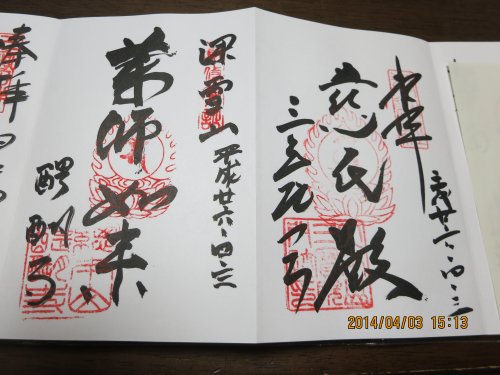 奉拝
慈氏殿
三宝院
平成廿六・四・三
深雪山
平成廿六・四・三
薬師如来
醍醐寺
奉拝
2014/04/03 15:13